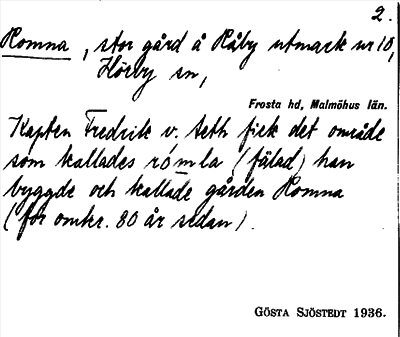 2.
Romna, stor gård å Råby utmark nr 10,
Hörby sn,
Frosta hd, Malmöhus län.
Kapten Fredrik v. Seth fick det område
som kallades rómla (fälad) han
byggde och kallade gården Romna
(för omkr. 80 år sedan).
GÖSTA SJÖSTEDT 1936.